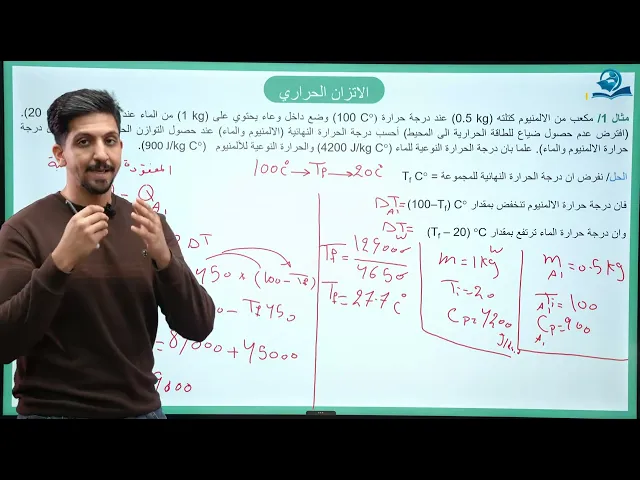 الاتزان الحراري
مثال 1/ مكعب من الالمنيوم كتلته (0.5 kg) عند درجة حرارة (100 C°) وضع داخل وعاء يحتوي على (1 kg) من الماء عند 20).
(افترض عدم حصول ضياع للطاقة الحرارية الى المحيط) أحسب درجة الحرارة النهائية (الالمنيوم والماء) عند حصول التوازن درجة
حرارة الالمنيوم والماء). علما بان درجة الحرارة النوعية للماء (4200 J/kg C°) والحرارة النوعية للألمنيوم (900 J/kg C°).
المفقودة
100C° → Tf → 20C°
الحل/ نفرض ان درجة الحرارة النهائية للمجموعة = Tf C°
Q Al
فان درجة حرارة الالمنيوم تنخفض بمقدار (100–Tf) C°
ΔT Al =
وان درجة حرارة الماء ترتفع بمقدار (Tf – 20) °C
ΔT w =
ΔT
450 × (100 – Tf)
– Tf 450
= 84000 + 45000
9000
Tf = 129000 / 4650
Tf = 27.7 C°
m w = 1 kg
Ti = 20
Cp = 4200
m Al = 0.5 kg
Ti Al = 100
Cp Al = 900